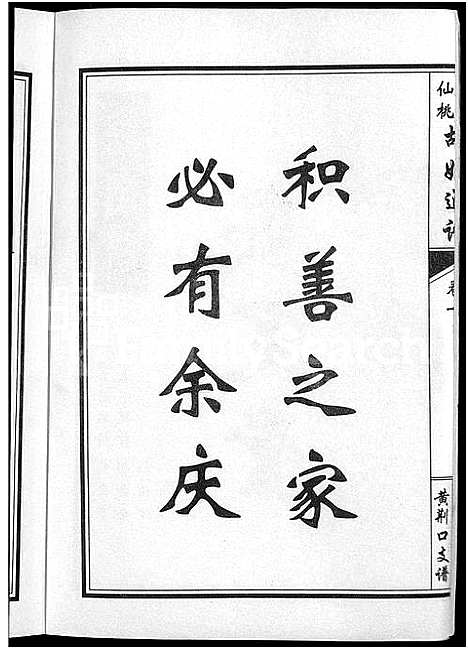 积善之家
必有余庆
仙桃胡氏通谱
卷一
黄荆口支谱
Search